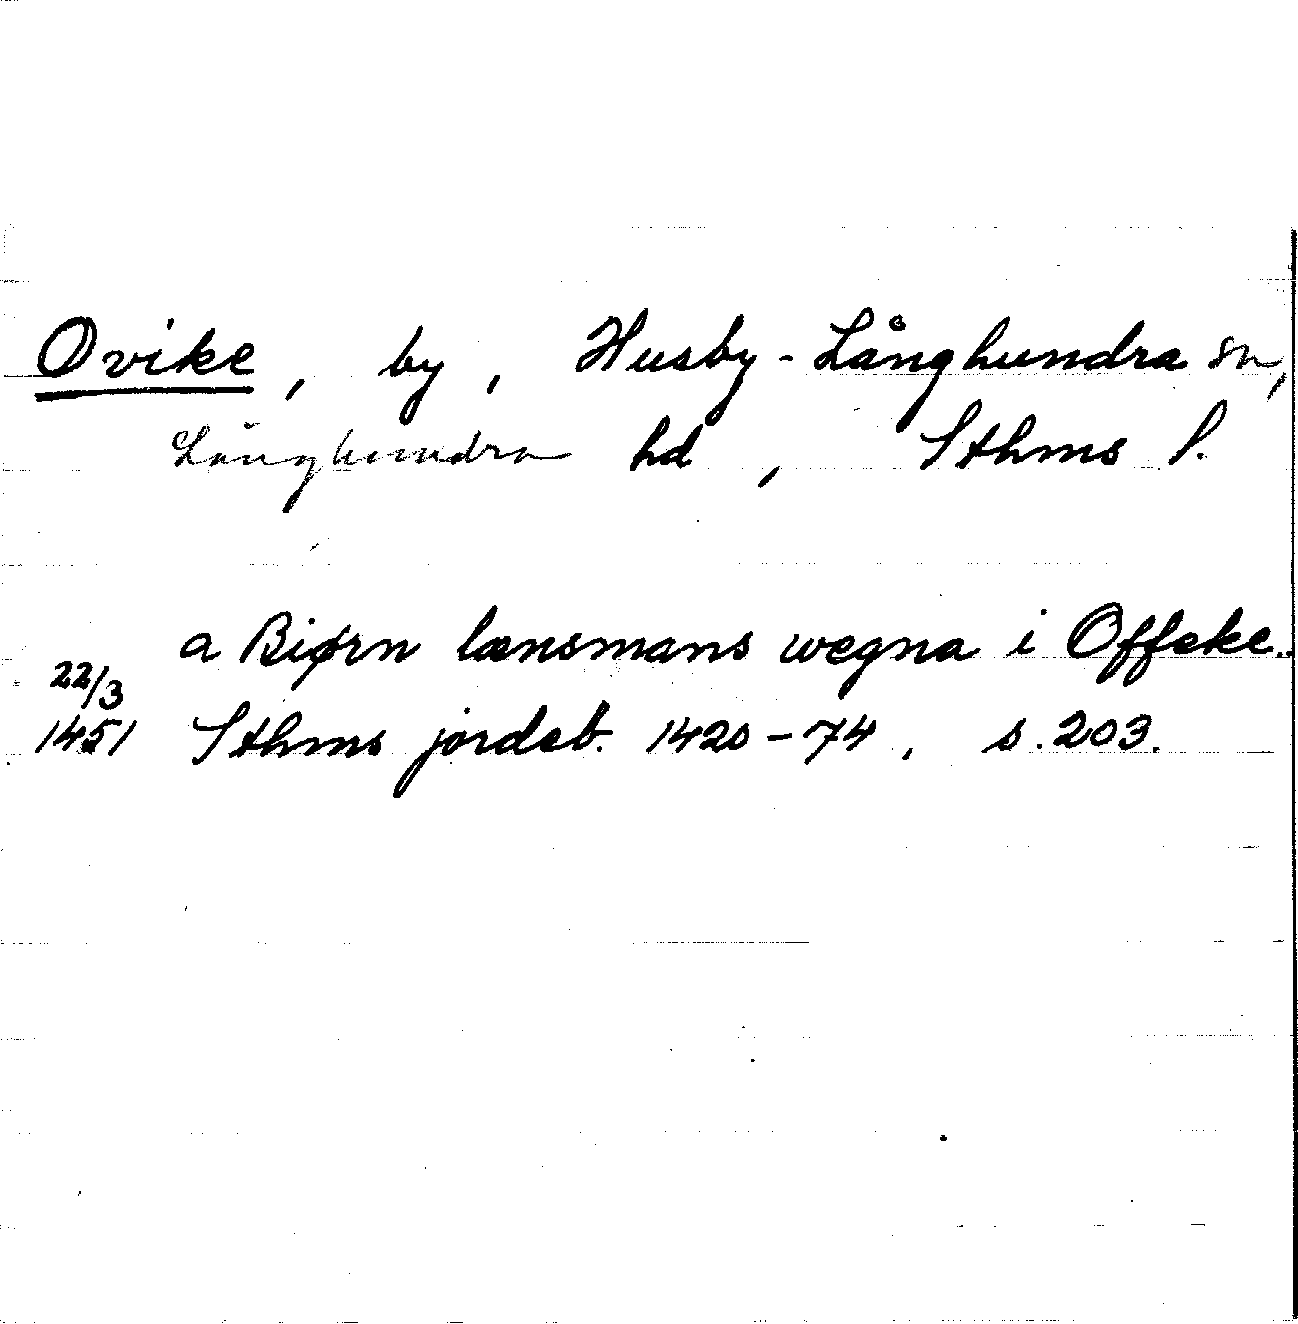 Ovike, by, Husby-Långhundra sn,
Långhundra hd, Sthms l.
a Biørn lænsmans wegna i Offeke..
22/3
1451 Sthms jordeb. 1420-74, s. 203.